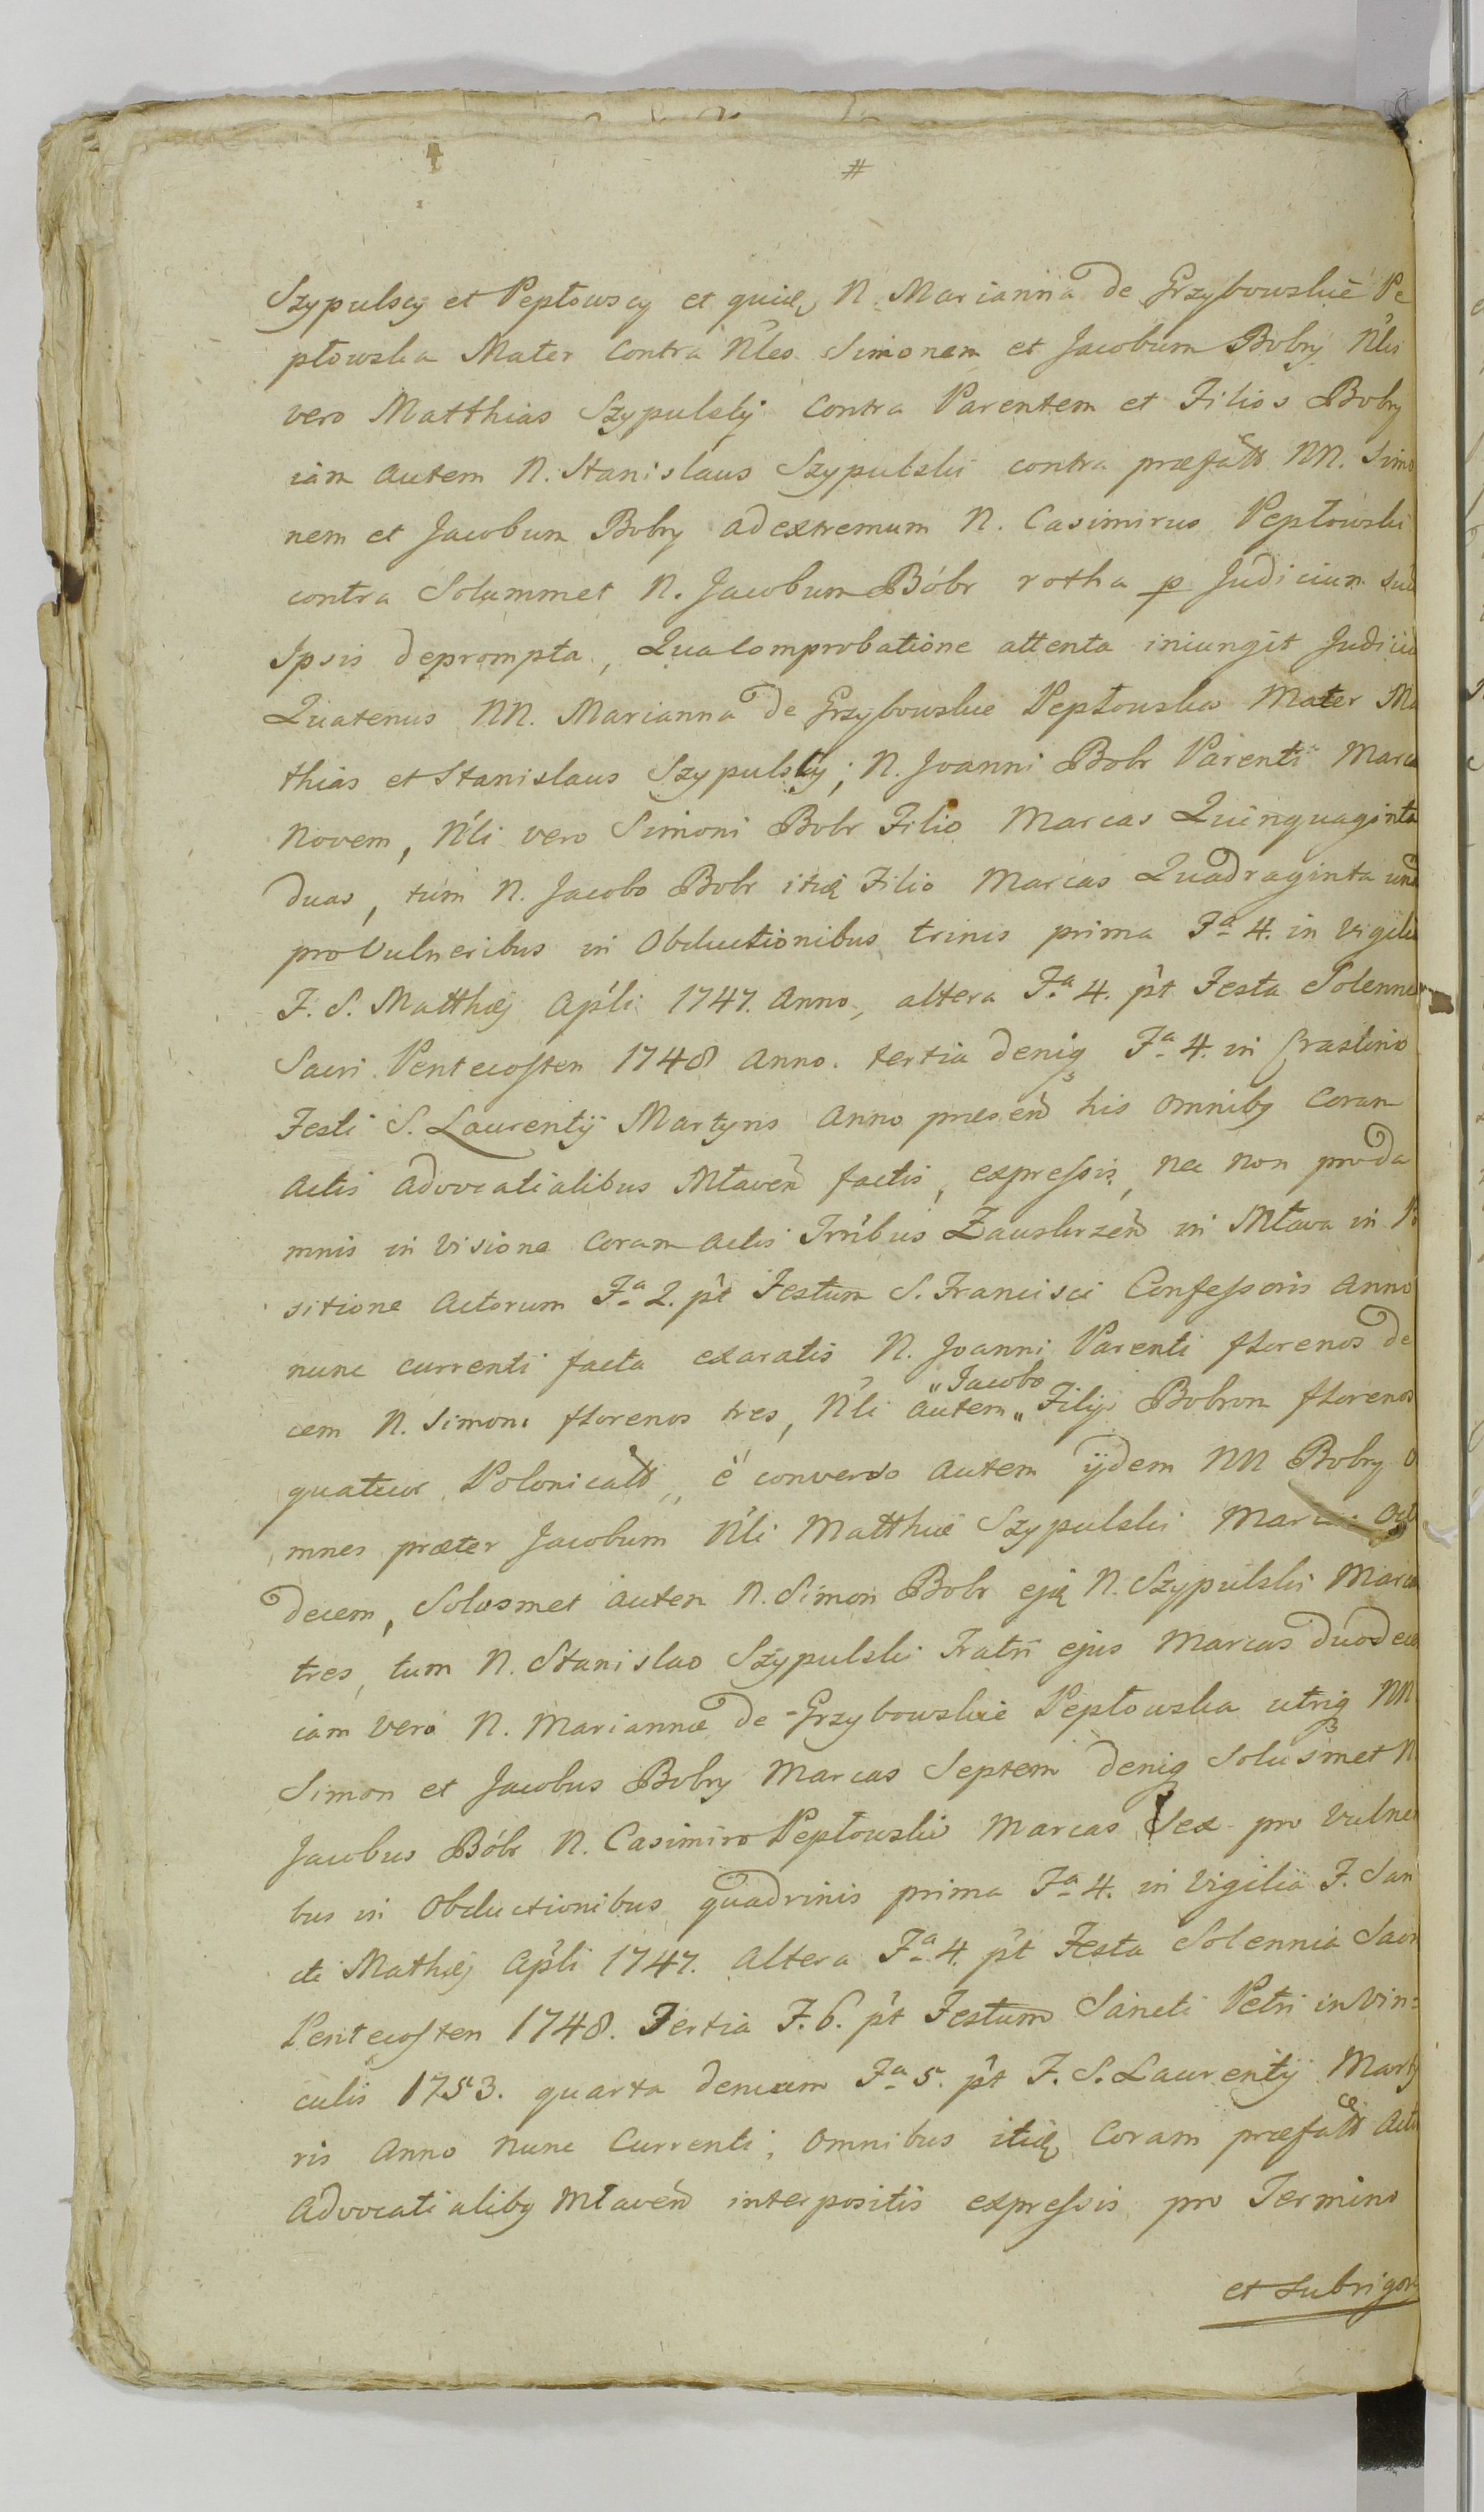 #
Szypulscy et Pepłowscy et quidē N. Marianna de Grzybowskie Pe
płowska Mater contra Nłes Simonem et Jacobum Bobry Nłis
vero Matthias Szypulskÿ contra Parentem et Filios Bobry
iam autem N. Stanislaus Szypulski contra præfatt NN. Simo
nem et Jacobum Bobry ad extremum N. Casimirus Pepłowski
contra Solummet N. Jacobum Bóbr rotha p Judicium sub
Ipsis deprompta, Qua Comprobatione attenta iniungit Judiciu
Quatenus NN. Marianna de Grzybowskie Pepłowska Mater Ma
thias et Stanislaus Szypulscy; N. Joanni Bobr Parenti Marca
Novem, Nłi vero Simoni Bobr Filio Marcas Quinquaginta
duas, tum N. Jacobo Bobr itid Filio Marcas Quadraginta una
pro Vulneribus in Obductionibus trinis prima Fª 4. in Vigilia
F. S. Matthæj Apłi 1747. Anno, altera Fª 4. pt Festa Solenne
Sacri Pentecosten 1748 Anno. tertia deniq Fª 4. in Crastino
Festi S. Laurentij Martyris Anno præsen his omnibq coram
Actis Advocatialibus Młaven factis, expressis, nec non pro da
mnis in Visione coram Actis Trribus Zauskrzen in Mława in Po
sitione Actorum Fª 2. pt Festum S. Francisci Confessoris Anno
nunc currenti facta exaratis N. Joanni Parenti florenos de
cem N. Simoni florenos tres, Nłi autem „Jacobo„ Filijs Bobrom florenos
quatuor Polonicatt, è converso autem ijdem NN Bobry o
mnes præter Jacobum Nłi Matthiæ Szypulski Marcas Octo
decem, Solusmet autem N. Simon Bobr ejd N. Szypulski Marca
tres, tum N. Stanislao Szypulski Fratri ejus Marcas duodece
iam vero N. Mariannæ de Grzybowskie Pepłowska utriq NN
Simon et Jacobus Bobry Marcas Septem deniq Solusmet N
Jacobus Bóbr N. Casimiro Pepłowski Marcas Sex pro Vulne
bus in Obductionibus quadrinis prima Fª 4. in Vigilia F. San
cti Mathæj Apłi 1747. Altera Fª 4. pt Festa Solennia Sacri
Pentecosten 1748. Tertia F. 6. pt Festum Sancti Petri in Vin=
culis 1753. quarta demum Fª 5. pt F. S. Laurentij Marty
ris Anno nunc Currenti, Omnibus itid coram præfatt Actis
Advocatialibq Młaven interpositis expressis pro Termino
et sub rigore